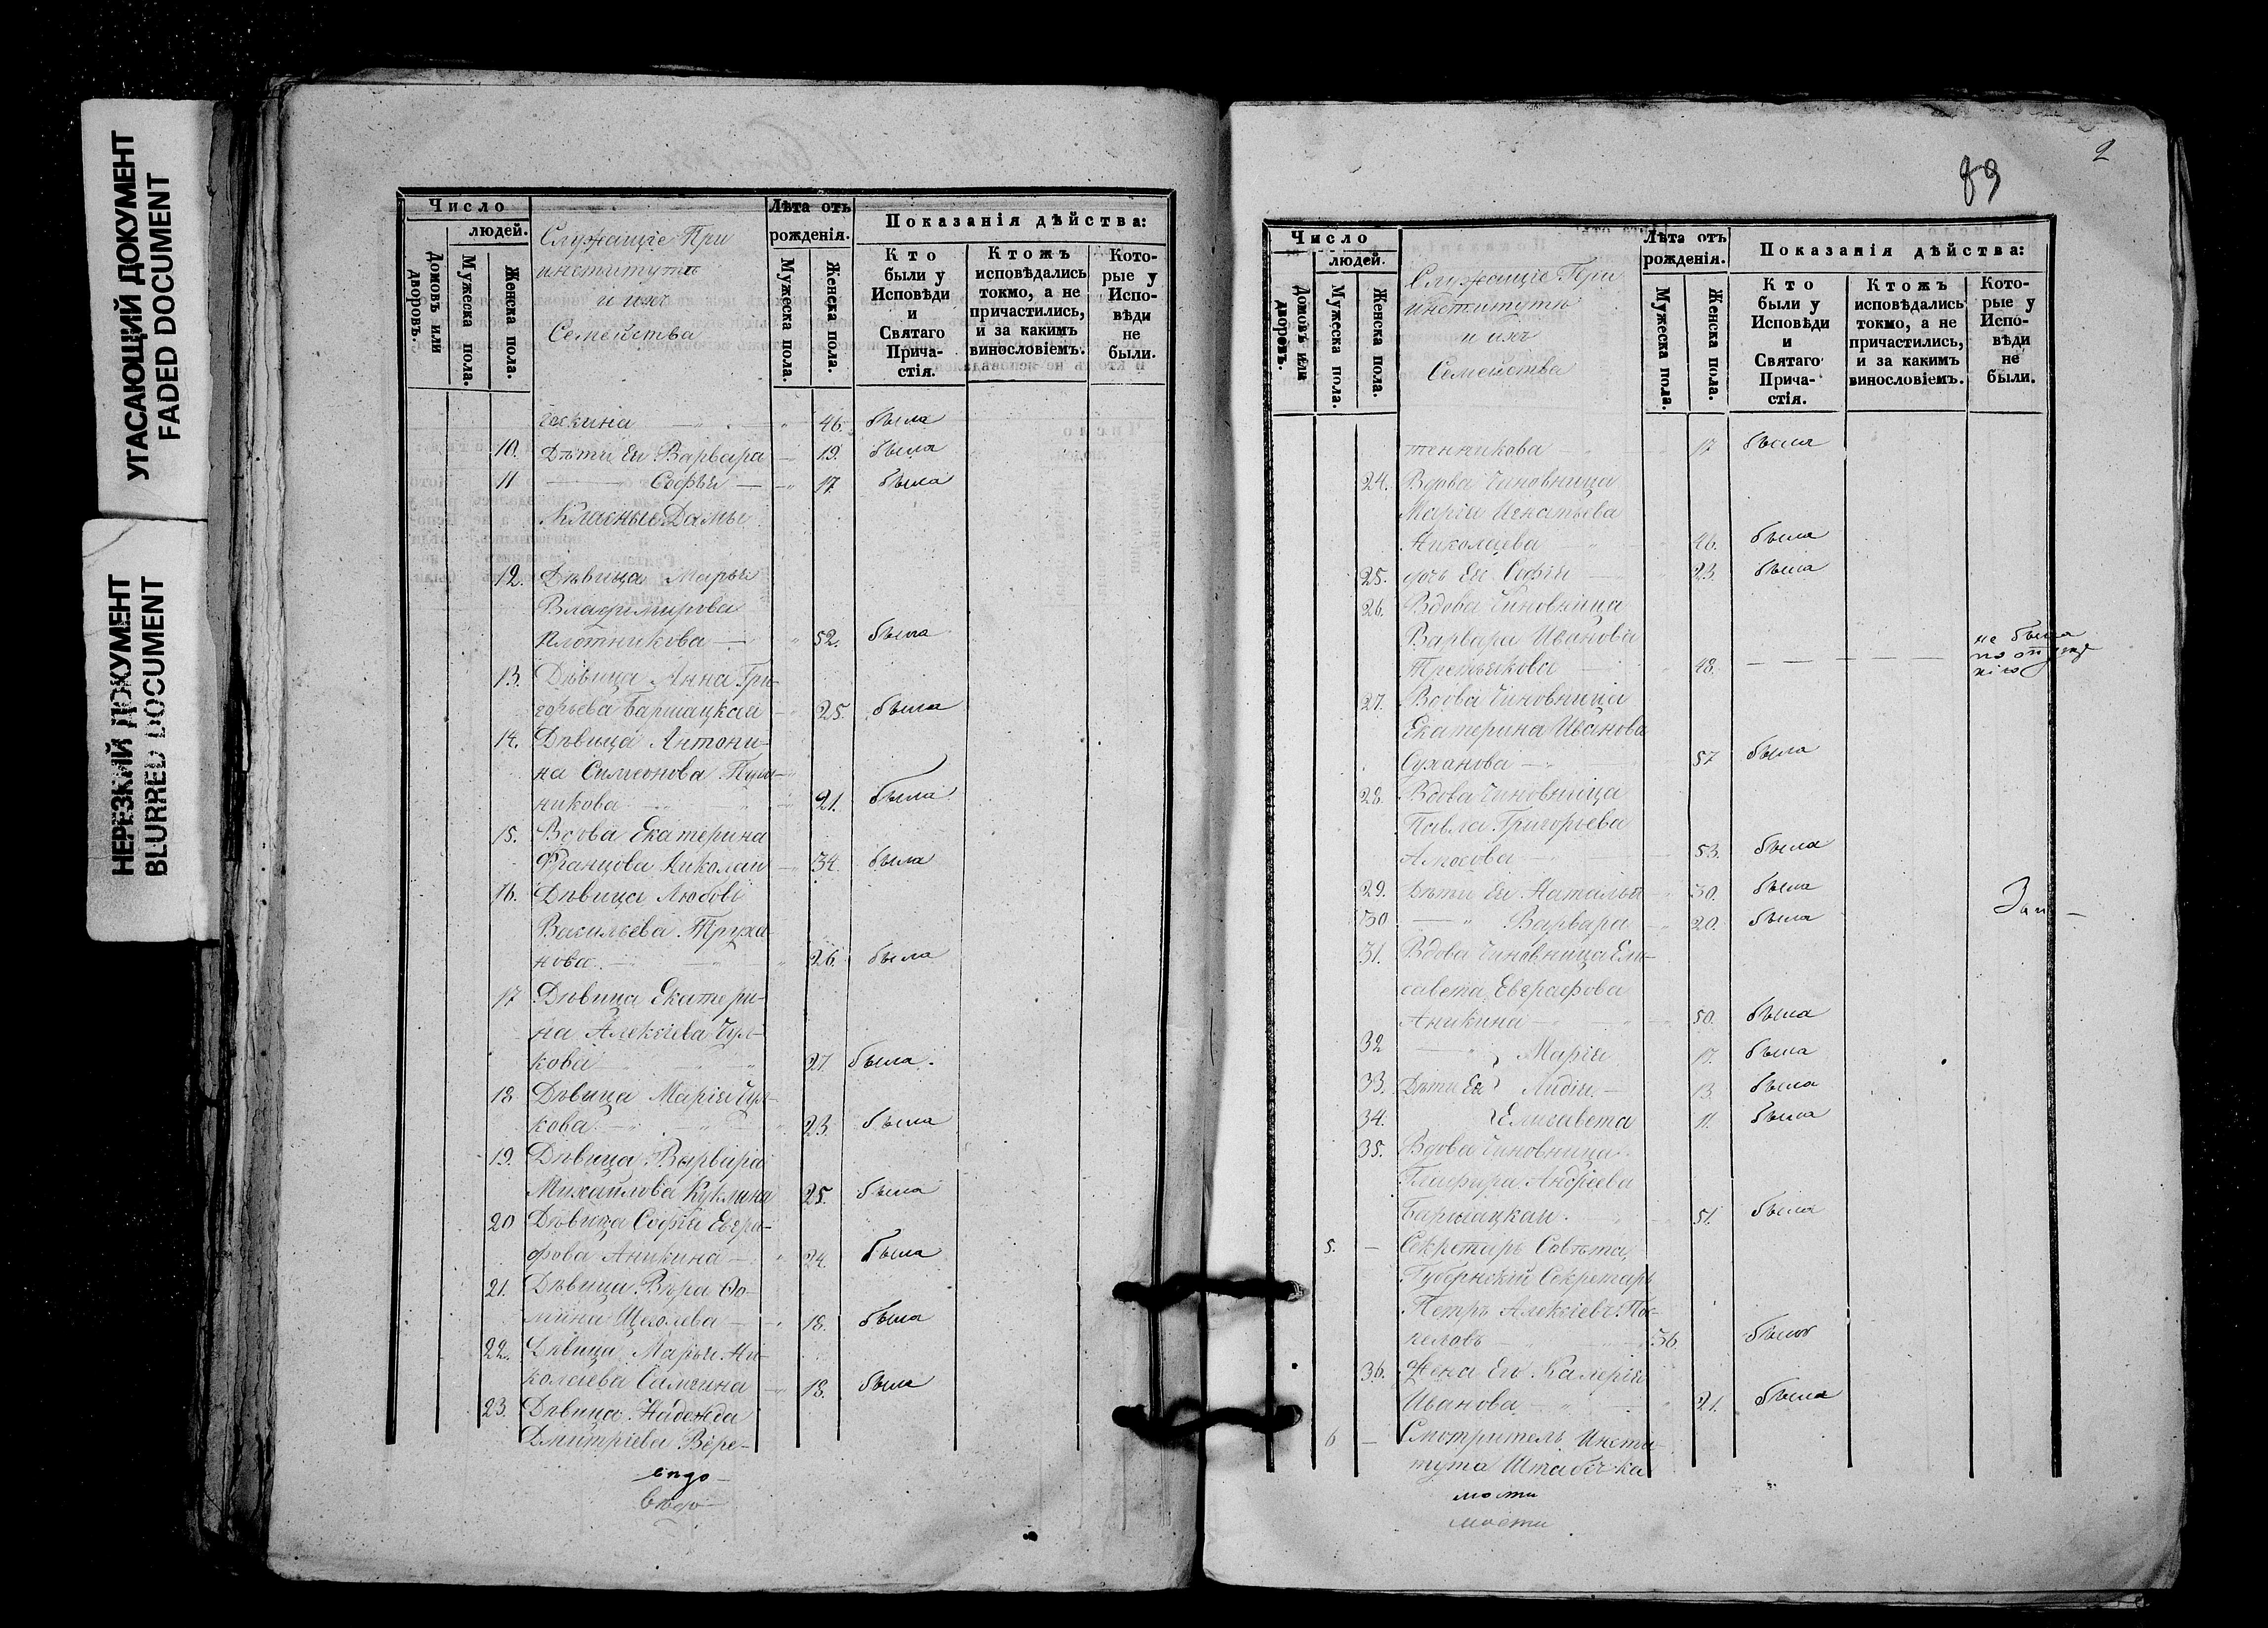 УГАСАЮЩИЙ ДОКУМЕНТ
FADED DOCUMENT
НЕРЕЗКИЙ ДОКУМЕНТ
BLURRED DOCUMENT
Число
людей.
Домовъ или дворовъ.
Мужеска пола.
Женска пола.
Служащіе При
институтѣ
и ихъ
Семейства
Лѣта отъ
рожденія.
Мужеска пола.
Женска пола.
Показанія дѣйства:
Кто
были у
Исповѣди
и
Святаго
Прича-
стія.
Ктожъ
исповѣдались
токмо, а не
причастились,
и за какимъ
винословіемъ.
Кото-
рые у
Испо-
вѣди
не
были.
46. была
10. Дѣти Ея Варвара 19. была
11 Софья 17. была
Класныя Дамы
12. Дѣвица Марья
Владимирова
Плотникова 52. была
13. Дѣвица Анна Гри-
горьева Баршацкая 25. была
14. Дѣвица Антони-
на Симеонова
никова 21. была
15. Вдова Екатерина
Францова Николаи 34. была
16. Дѣвица Любовь
Васильева Труха-
нова 26. была
17 Дѣвица Екатери-
на Алексѣева Чул-
кова 27 была
18 Дѣвица Марія Чул-
кова 23. была
19. Дѣвица Варвара
Михайлова Куклина 25. была
20 Дѣвица Софія Евгра-
фова Аникина 24. была
21. Дѣвица Вѣра Ѳо-
мина Щеголева 18. была
22. Дѣвица Марья Ни-
колаева Самсина 18. была
23. Дѣвица Надежда
Дмитріева Вере-
2
89
Число
людей.
Домовъ или дворовъ.
Мужеска пола.
Женска пола.
Служащіе При
институтѣ
и ихъ
Семейства
Лѣта отъ
рожденія.
Мужеска пола.
Женска пола.
Показанія дѣйства:
Кто
были у
Исповѣди
и
Святаго
Прича-
стія.
Ктожъ
исповѣдались
токмо, а не
причастились,
и за какимъ
винословіемъ.
Кото-
рые у
Испо-
вѣди
не
были.
тенникова 17 была
24. Вдова Чиновница
Марія Игнатьева
Николаева 46. была
25. дочь Ея Софія 23. была
26. Вдова Чиновница
Варвара Иванова
Третьякова 48. не была
27. Вдова Чиновница
Екатерина Иванова
Суханова 57 была
28. Вдова Чиновница
Павла Григорьева
Амосова 53. была
29. Дѣти Ея Наталья 30. была
30 Варвара 20. была
31. Вдова Чиновница Ели-
савета Евграфова
Аникина 50. была
32 Марія 17. была
33. Дѣти Ея Лидія 13. была
34. Елисавета 11. была
35. Вдова Чиновница
Глафира Андреева
Баршацкая 51. была
5. Секретарь Совѣта,
Губернскій Секретарь
Петръ Алексѣевъ По-
36. былъ
36. Жена Его Валерія
Иванова 21. была
6 Смотритель Инсти-
тута Штабсъ ка